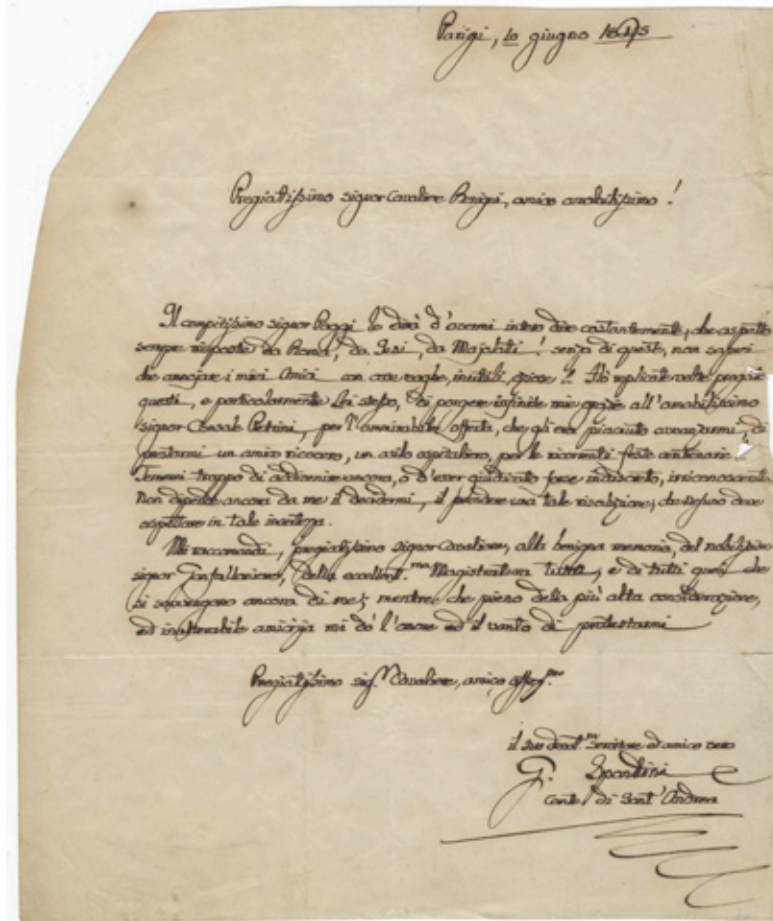 Parigi, 10 giugno 1845
Pregiatissimo signor Cavaliere Benigni, amico amabilissimo!
Il compitissimo signor Poggi le dirà d'avermi inteso dire costantemente, che aspetto
sempre risposte da Roma, da Jesi, da Majolati! senza di queste, non saprei
che annojare i miei Amici con cose vaghe, inutili, oziose!! Ho replicate volte pregato
questi, e particolarmente Lei stesso, di porgere infinite mie grazie all'amabilissimo
signor Console Pietrini, per l'ammirabile offerta, che gli era piaciuto avanzarmi, di
prestarmi un amico ricovero, un asilo ospitaliero, per le ricorrenti feste centenarie
Temerei troppo di addivenire ancora, o d'esser giudicato forse indiscreto, irriconoscente
Non dipende ancora da me il decidermi, il prendere una tale risoluzione; che nessuno deve
aspettare in tale incertezza.
Mi raccomandi, pregiatissimo signor Cavaliere, alla benigna memoria, del nobilissimo
signor Gonfaloniere, della eccellent.ma Magistratura tutta, e di tutti quei, che
si sovvengono ancora di me; mentre, che pieno della più alta considerazione,
ed inalterabile amicizia mi dò l'onore ed il vanto di protestarmi
Pregiatissimo sig.r Cavaliere, amico
il suo devot.mo Servitore ed amico vero
G. Spontini
Conte di Sant'Andrea